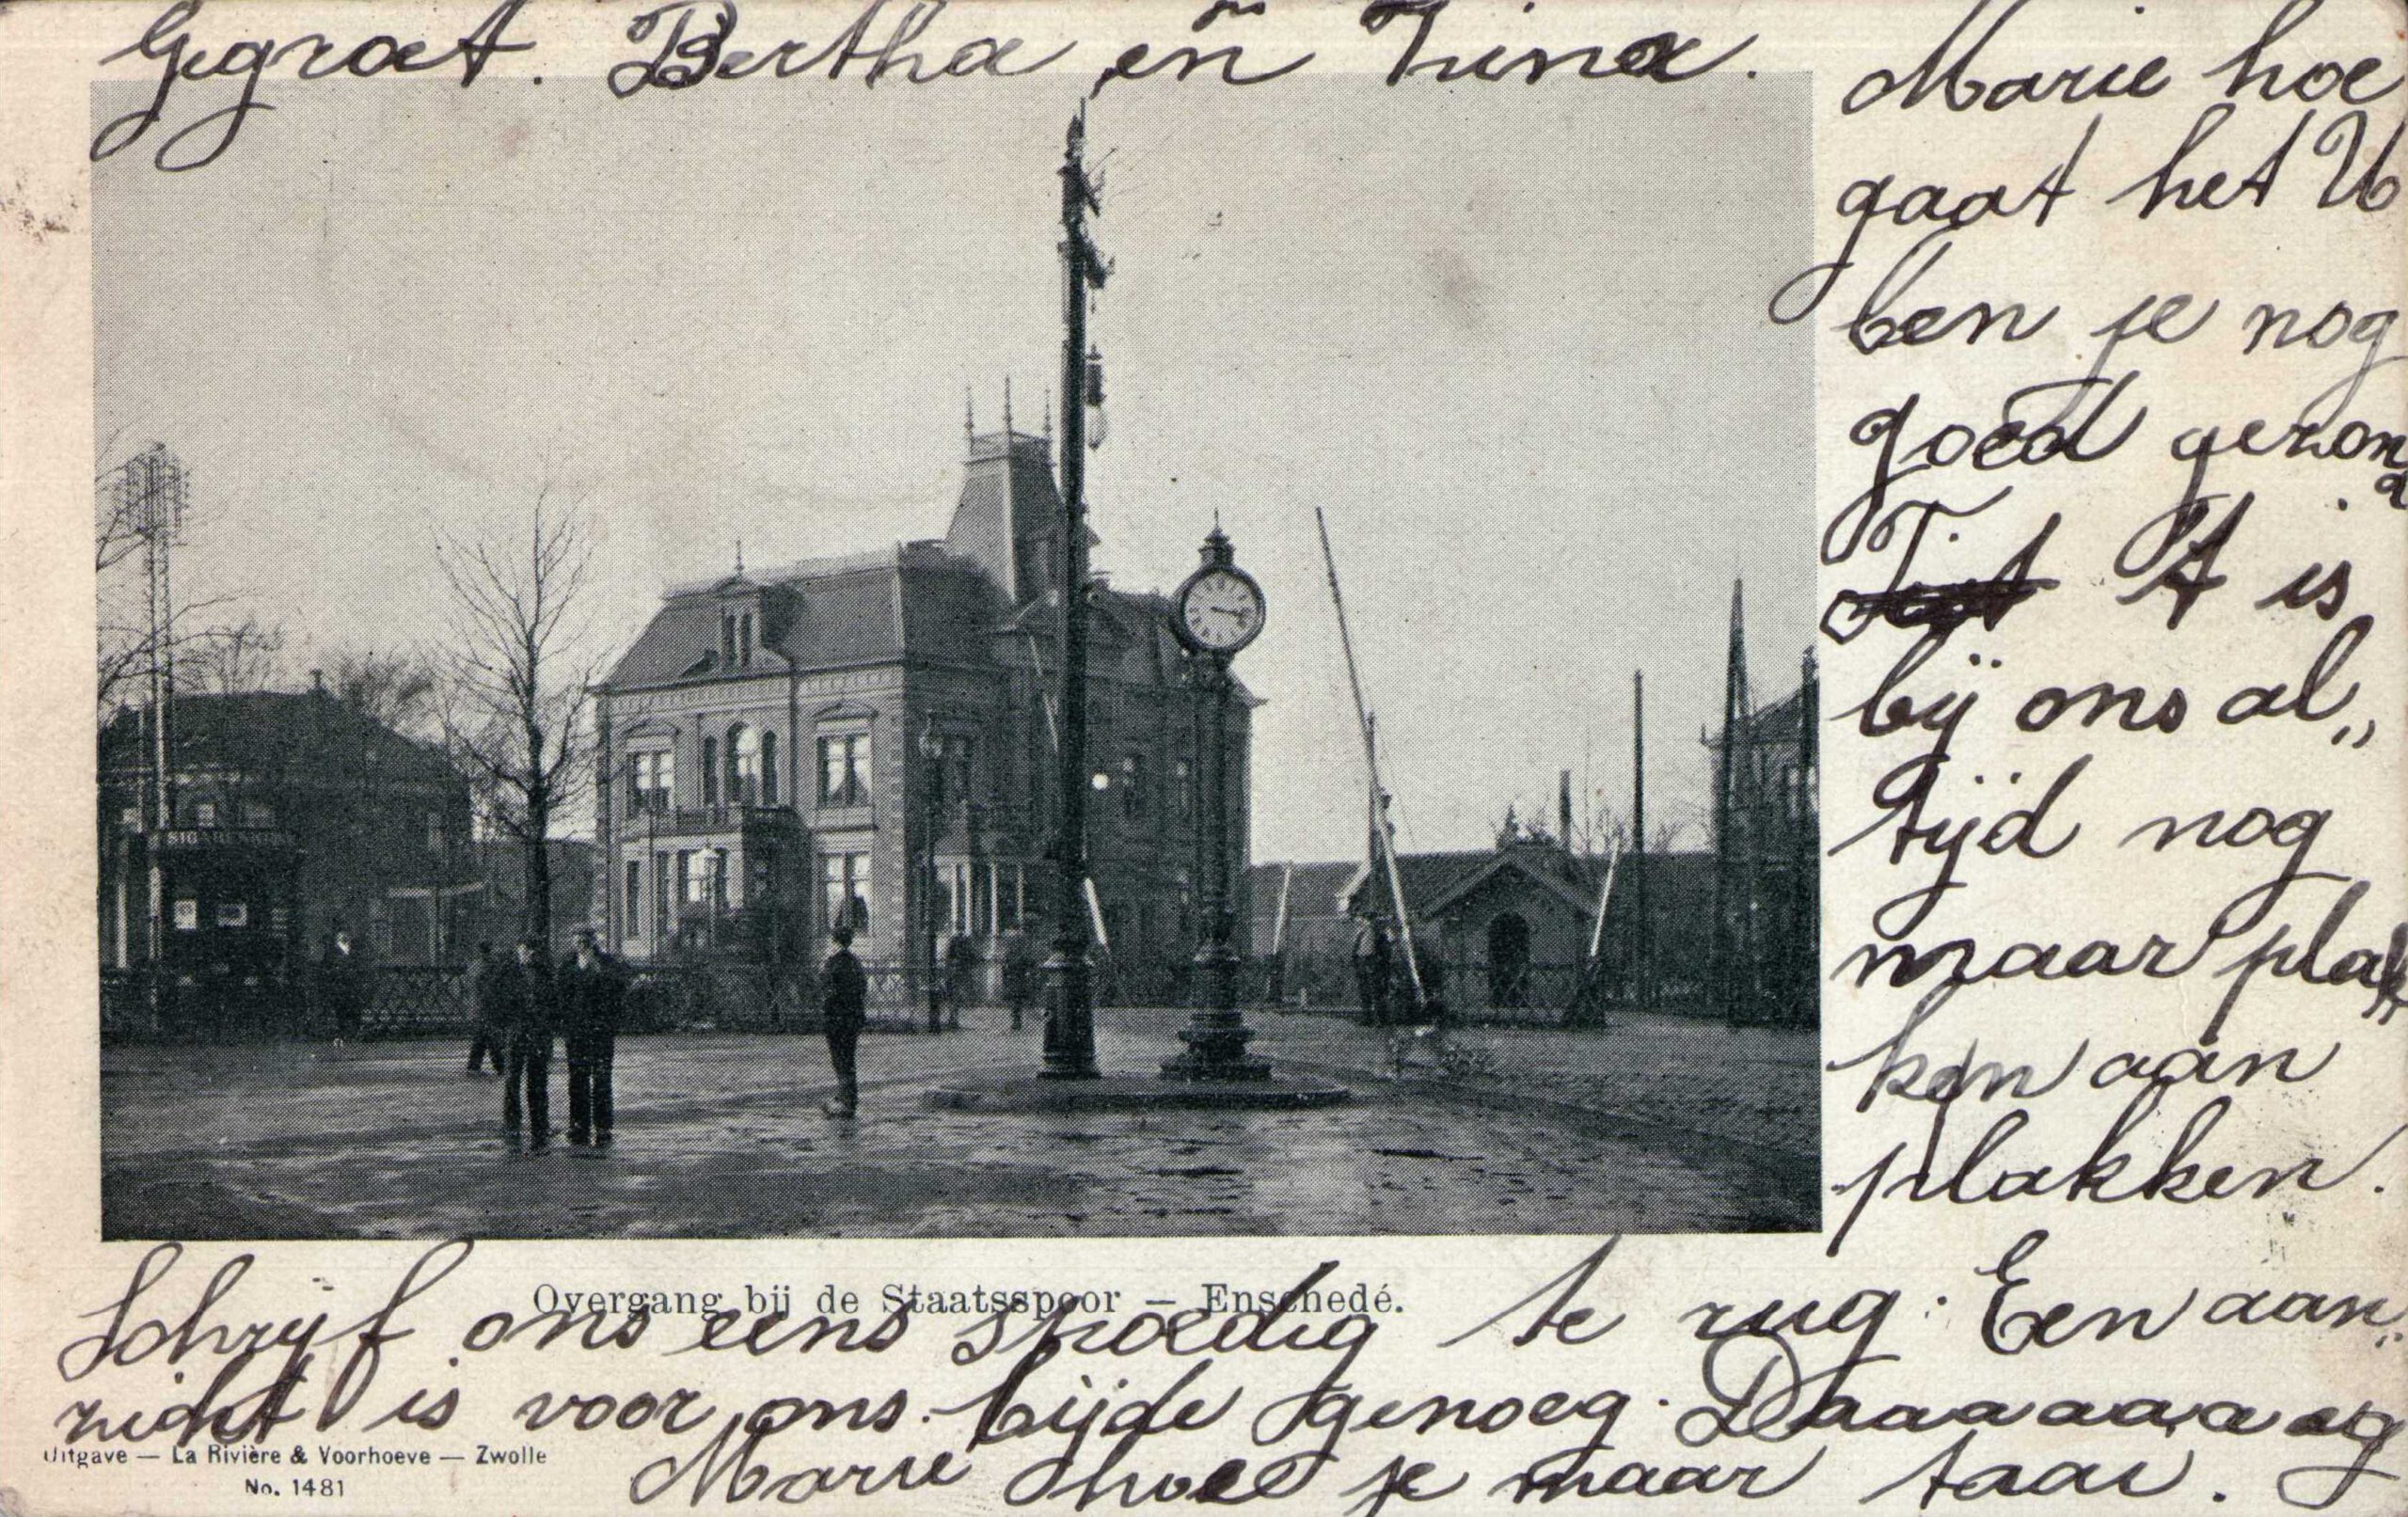 Gegroet. Bertha en Lina.
Marie hoe
gaat het U
ben je nog
goed gezon
d.
T. 't is
bij ons al„
tijd nog
maar plak
ken aan
plakken.
SIGAREN
Overgang bij de Staatsspoor — Enschedé.
Schrijf ons eens spoedig te rug. Een aan„
zicht is voor ons bijde genoeg. Daaaaaaaag
Marie hoel je maar taai.
Uitgave — La Rivière & Voorhoeve — Zwolle
No. 1481